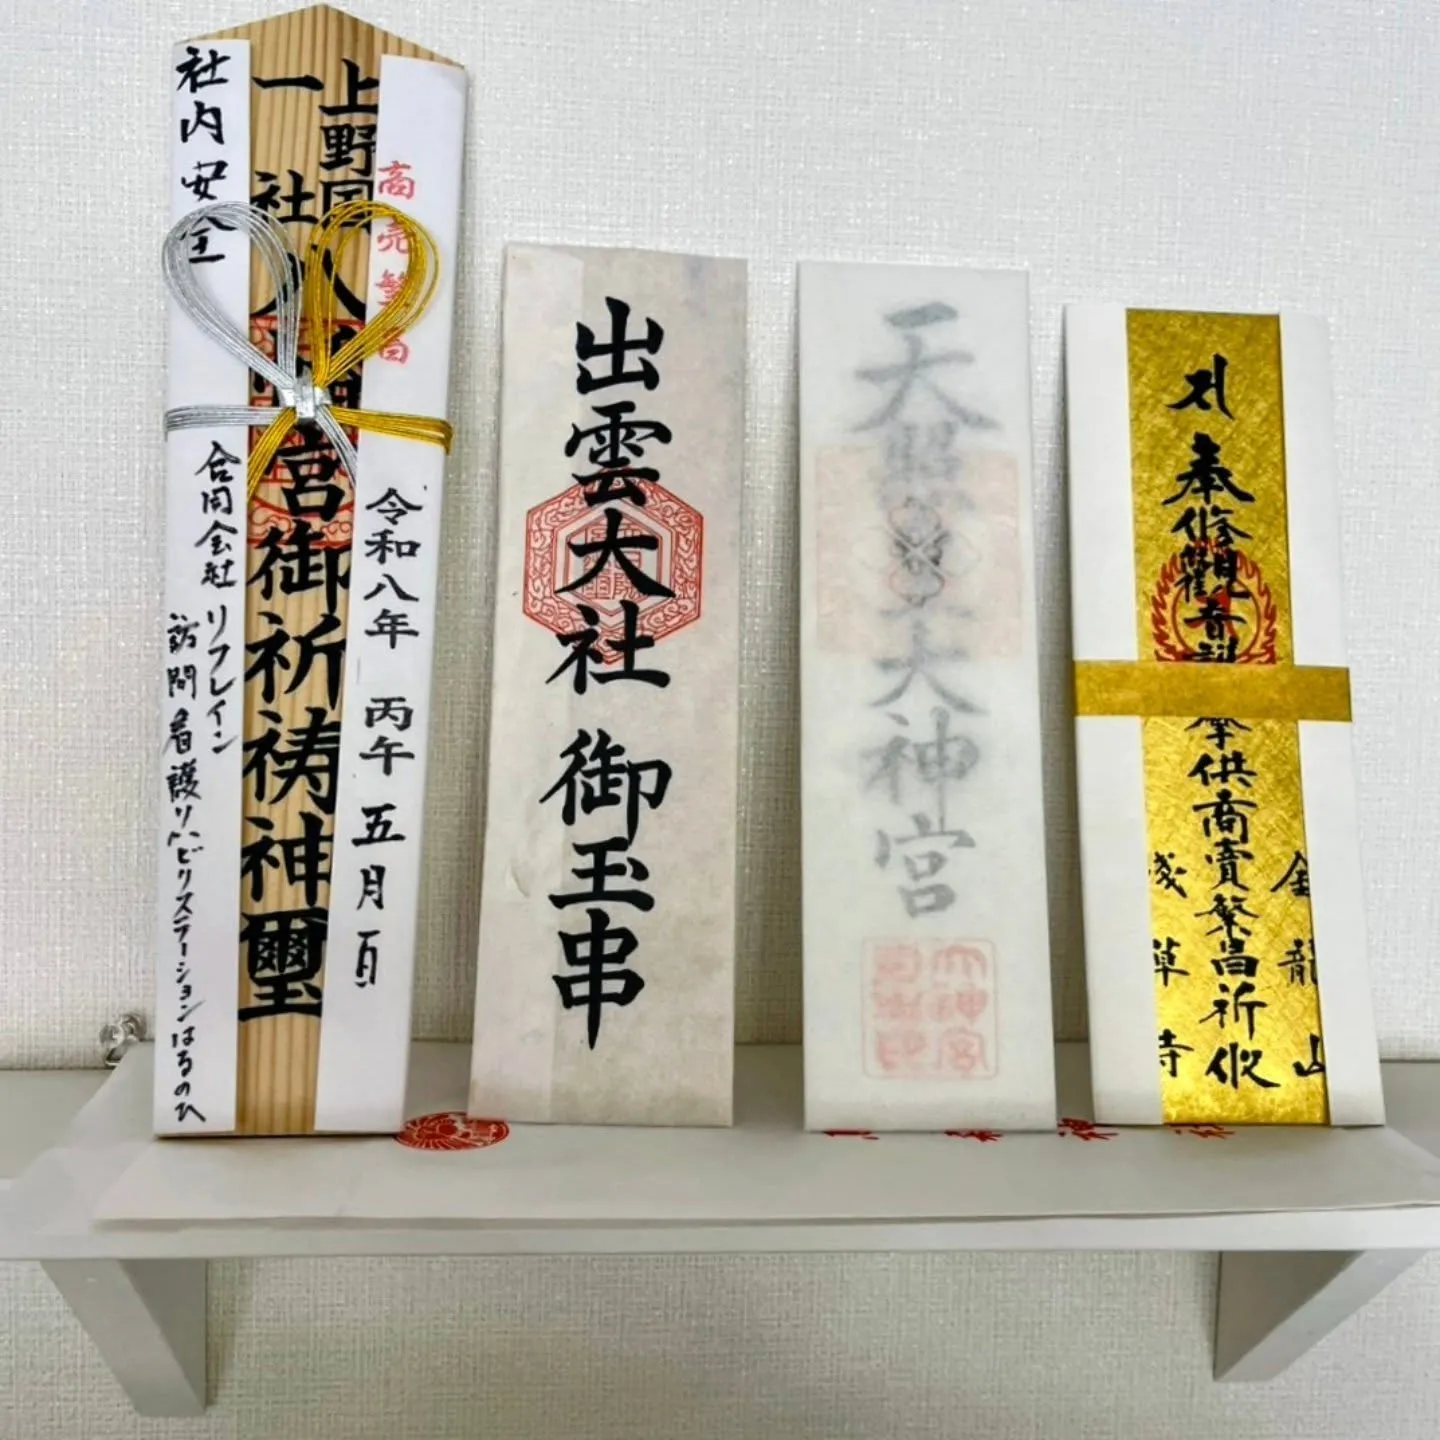 社内安全
上野国
一社八幡宮御祈祷神璽
商売繁昌
合同会社
リフレイン
訪問看護リハビリステーションはるのひ
令和八年 丙午 五月 吉日
出雲大社 御玉串
天照皇大神宮
奉修観音
奉供商賣繁昌祈攸
金龍山
浅草寺